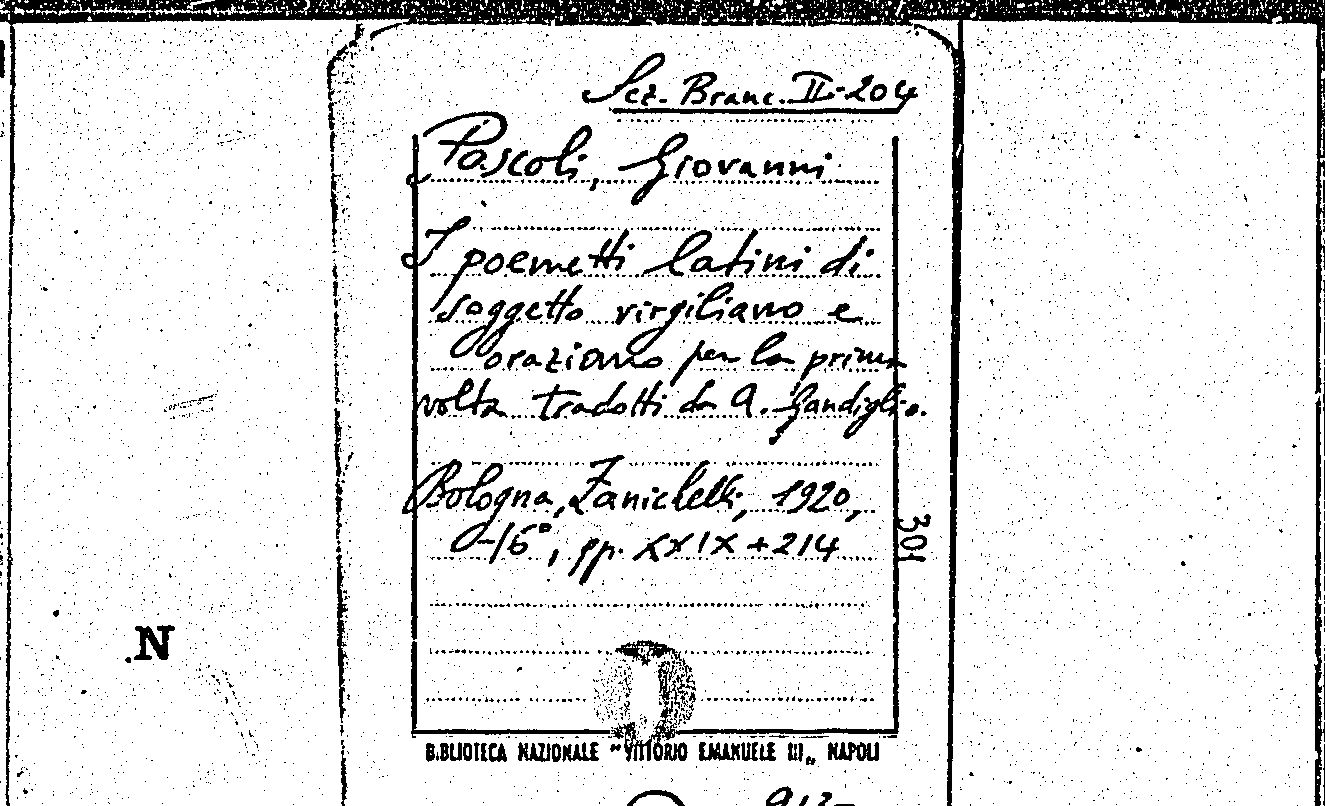 Sez. Branc. II-204
Pascoli, Giovanni
I poemetti latini di
soggetto virgiliano e
oraziano per la prima
volta tradotti da A. Gandiglio.
Bologna, Zanichelli, 1920,
-16°, pp. XXIX + 214
301
.N
BIBLIOTECA NAZIONALE "VITTORIO EMANUELE III„ NAPOLI